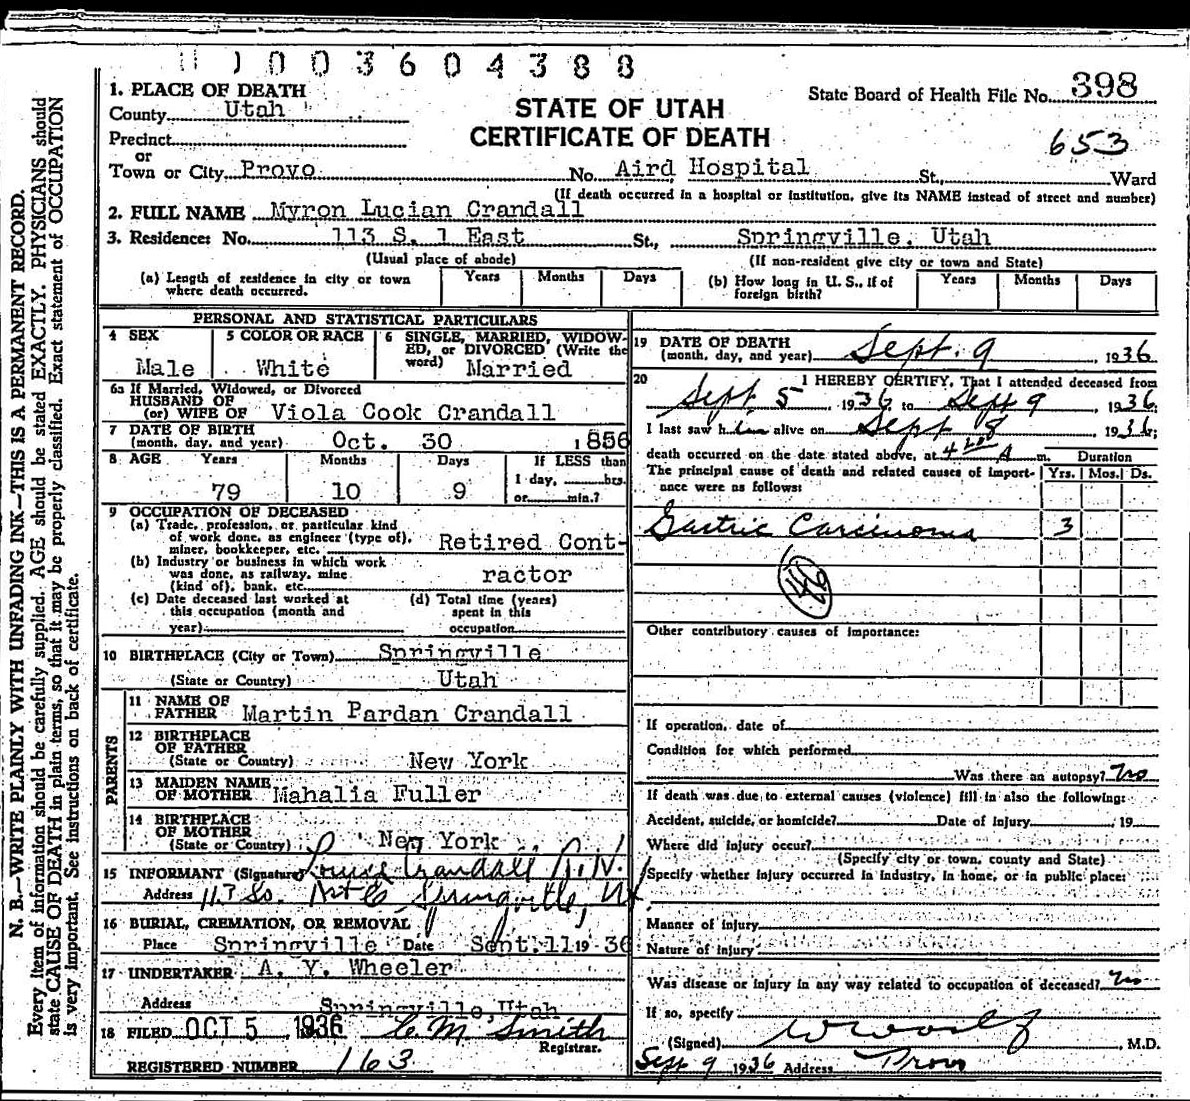 1003604388
1. PLACE OF DEATH
County Utah
Precinct
or
Town or City Provo
STATE OF UTAH
CERTIFICATE OF DEATH
State Board of Health File No. 398
653
No. Aird Hospital St., Ward
(If death occurred in a hospital or institution, give its NAME instead of street and number)
2. FULL NAME Myron Lucian Crandall
3. Residence: No. 113 S. 1 East St., Springville, Utah
(Usual place of abode) (If non-resident give city or town and State)
(a) Length of residence in city or town where death occurred. Years Months Days
(b) How long in U. S., if of foreign birth? Years Months Days
PERSONAL AND STATISTICAL PARTICULARS
4 SEX
Male
5 COLOR OR RACE
White
6 SINGLE, MARRIED, WIDOW-
ED, or DIVORCED (Write the
word) Married
6a If Married, Widowed, or Divorced
HUSBAND OF
(or) WIFE OF Viola Cook Crandall
7 DATE OF BIRTH
(month, day, and year) Oct. 30 1856
8 AGE Years Months Days If LESS than
79 10 9 1 day, hrs.
or min.?
9 OCCUPATION OF DECEASED
(a) Trade, profession, or particular kind
of work done, as engineer (type of),
miner, bookkeeper, etc. Retired Cont-
(b) Industry or business in which work
was done, as railway, mine ractor
(kind of), bank, etc.
(c) Date deceased last worked at
this occupation (month and
year)
(d) Total time (years)
spent in this
occupation
10 BIRTHPLACE (City or Town) Springville
(State or Country) Utah
PARENTS
11 NAME OF
FATHER Martin Pardan Crandall
12 BIRTHPLACE
OF FATHER
(State or Country) New York
13 MAIDEN NAME
OF MOTHER Mahalia Fuller
14 BIRTHPLACE
OF MOTHER
(State or Country) New York
15 INFORMANT (Signature) Crandall R.N.
Address So. Springville, Ut
16 BURIAL, CREMATION, OR REMOVAL
Place Springville Date Sept. 11 1936
17 UNDERTAKER A. Y. Wheeler
Address Springville, Utah
18 FILED OCT 5 1936 C. M. Smith
Registrar.
REGISTERED NUMBER 163
19 DATE OF DEATH
(month, day, and year) Sept. 9, 1936
20 I HEREBY CERTIFY, That I attended deceased from
Sept. 5 1936 to Sept 9, 1936
I last saw him alive on Sept 8, 1936;
death occurred on the date stated above, at A m. Duration
The principal cause of death and related causes of import-
ance were as follows: Yrs. Mos. Ds.
Gastric Carcinoma 3
Other contributory causes of importance:
If operation, date of
Condition for which performed
Was there an autopsy? no
If death was due to external causes (violence) fill in also the following:
Accident, suicide, or homicide? Date of injury , 19
Where did injury occur?
(Specify city or town, county and State)
Specify whether injury occurred in industry, in home, or in public place:
Manner of injury
Nature of injury
Was disease or injury in any way related to occupation of deceased? no
If so, specify
(Signed) , M.D.
Sept 9 1936 Address Provo
N. B.—WRITE PLAINLY WITH UNFADING INK—THIS IS A PERMANENT RECORD.
Every item of information should be carefully supplied. AGE should be stated EXACTLY. PHYSICIANS should
state CAUSE OF DEATH in plain terms, so that it may be properly classified. Exact statement of OCCUPATION
is very important. See instructions on back of certificate.